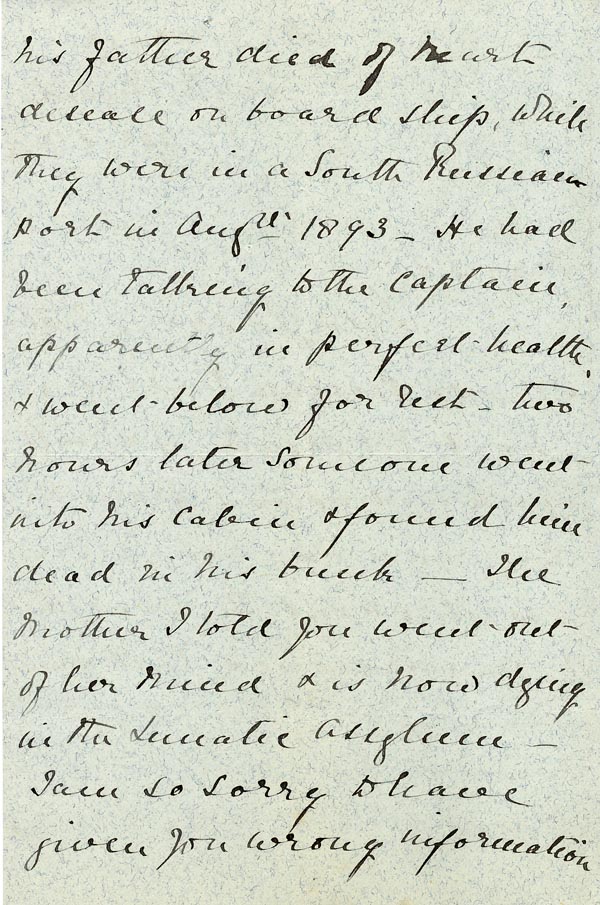 his father died of heart
disease on board ship, while
they were in a South Russian
port in Augst 1893 - He had
been talking to the Captain,
apparently in perfect health,
& went below for rest - two
hours later someone went
into his cabin & found him
dead in his bunk — The
Mother I told you went out
of her mind & is now dying
in the Lunatic Asylum —
I am so sorry to have
given you wrong information